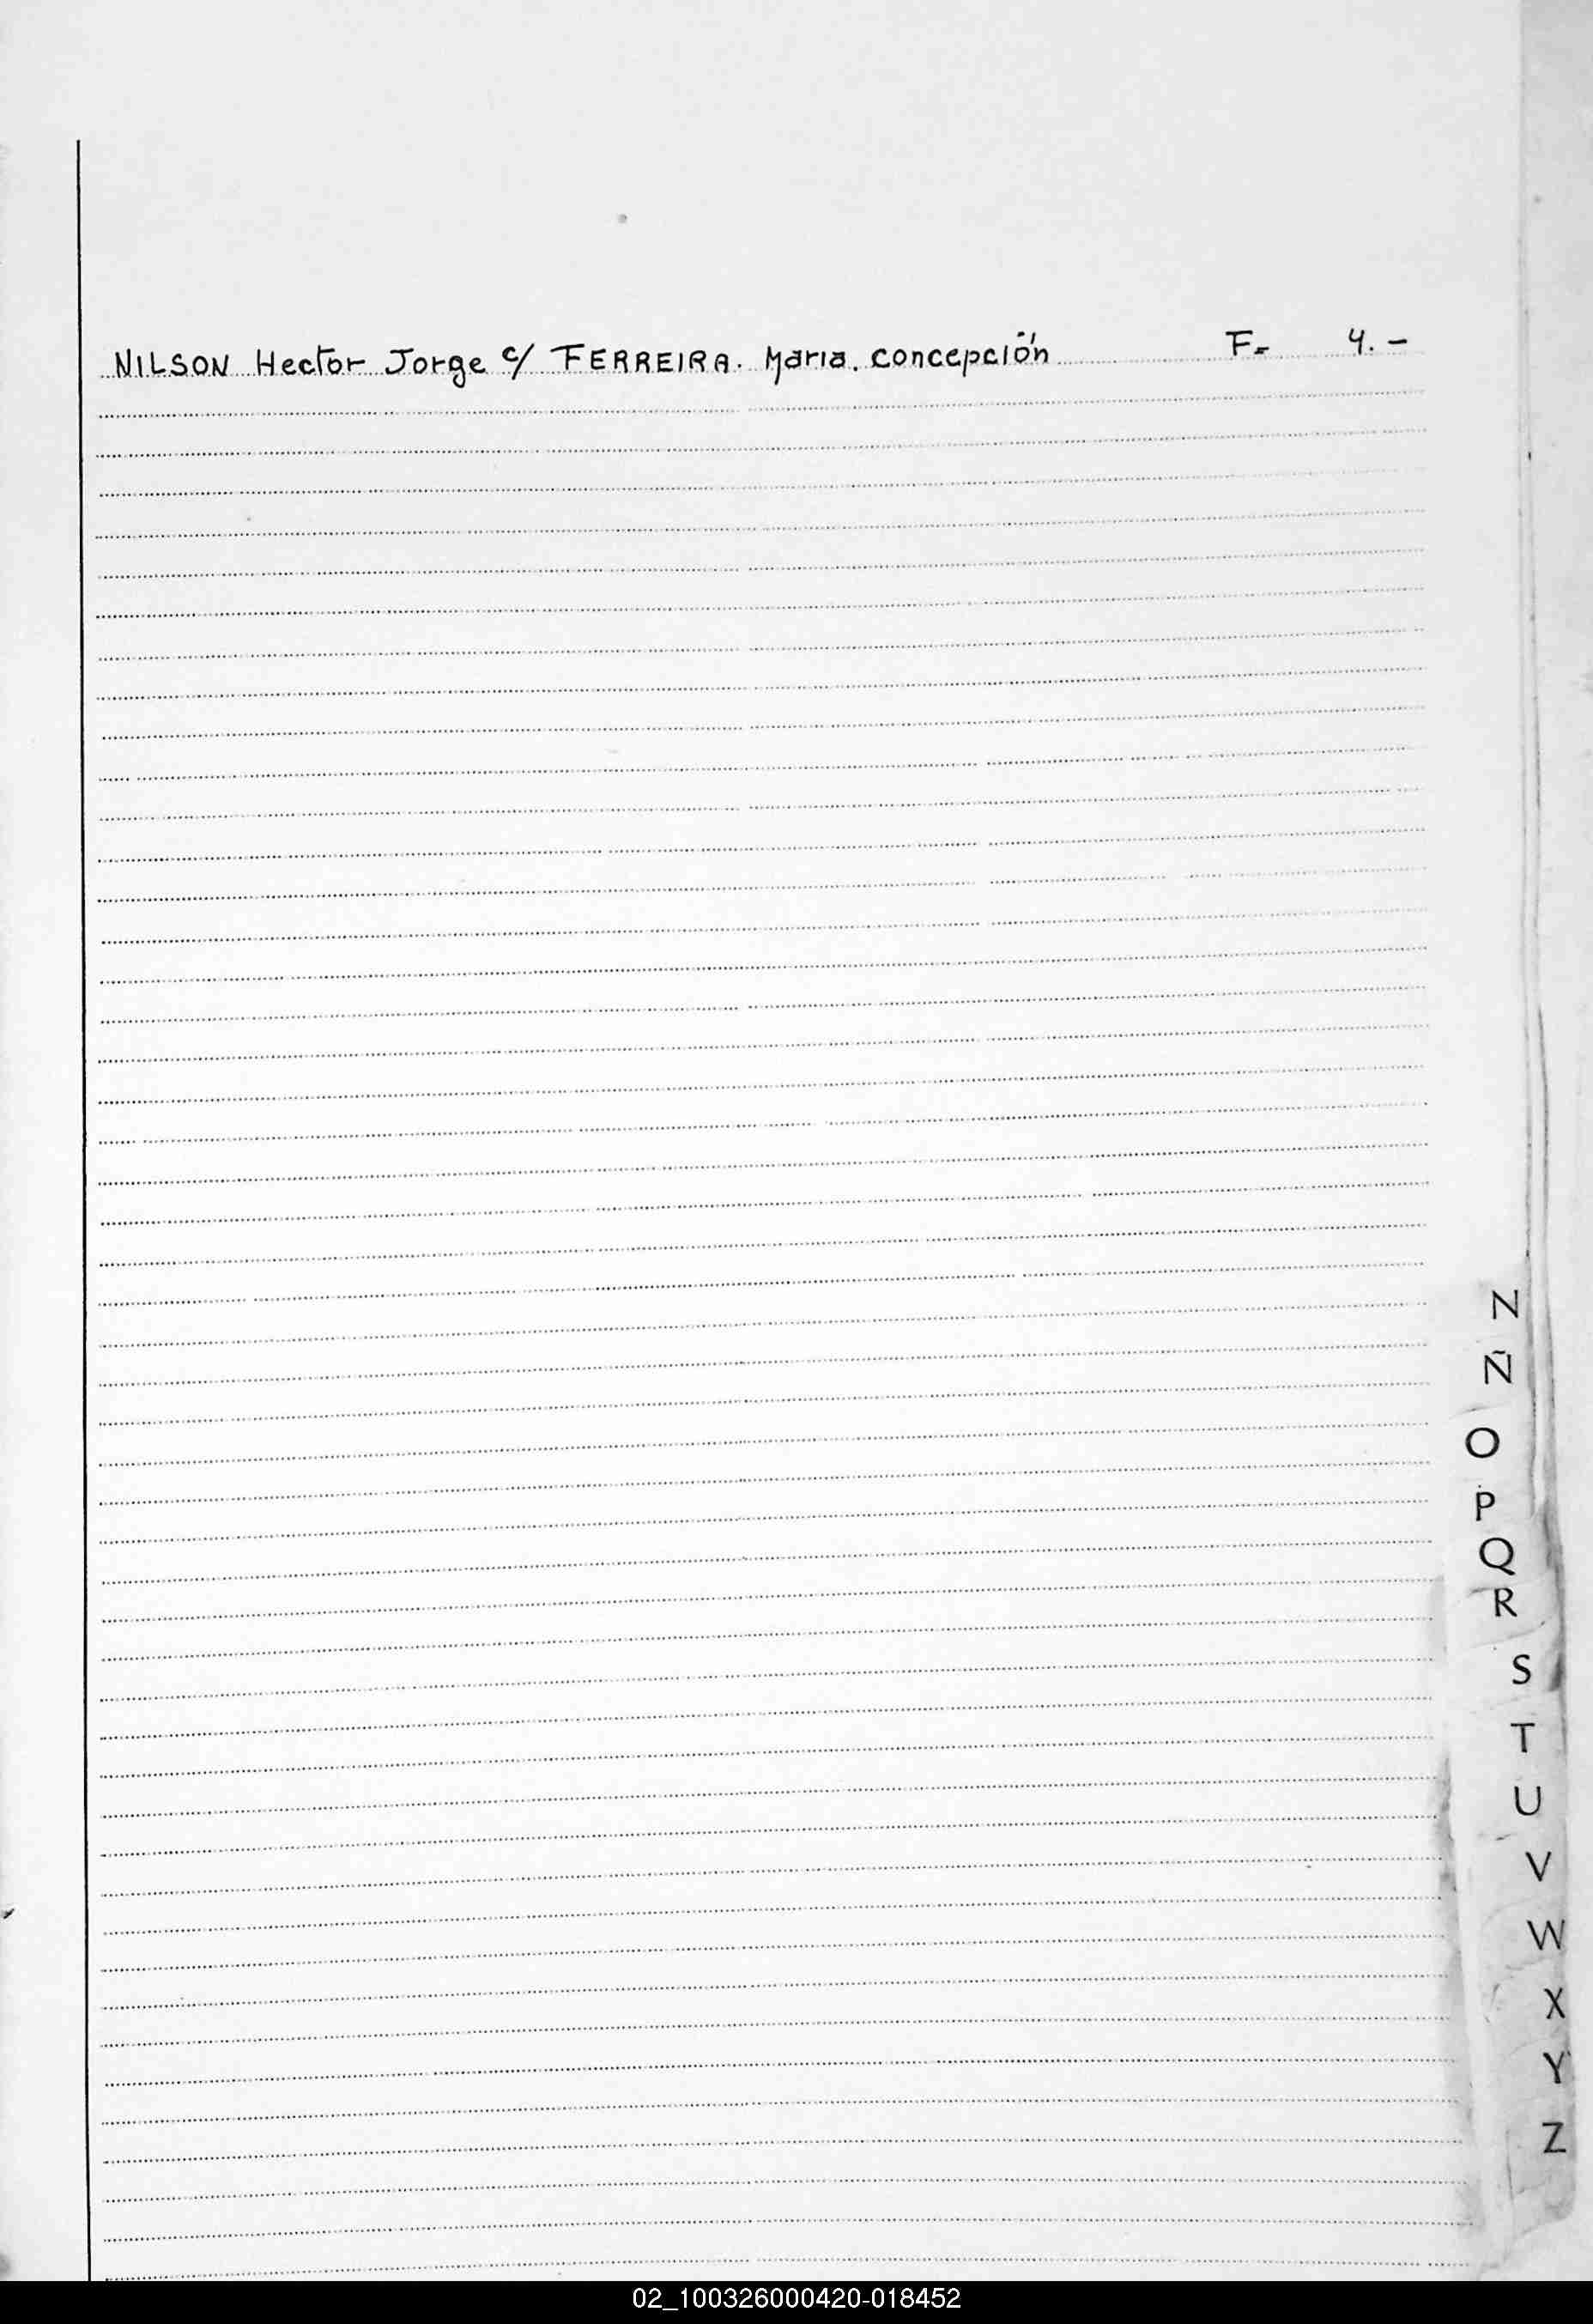 NILSON Hector Jorge c/ FERREIRA. Maria. Concepción F= 4.-
N
Ñ
O
P
Q
R
S
T
U
V
W
X
Y
Z
02_100326000420-018452